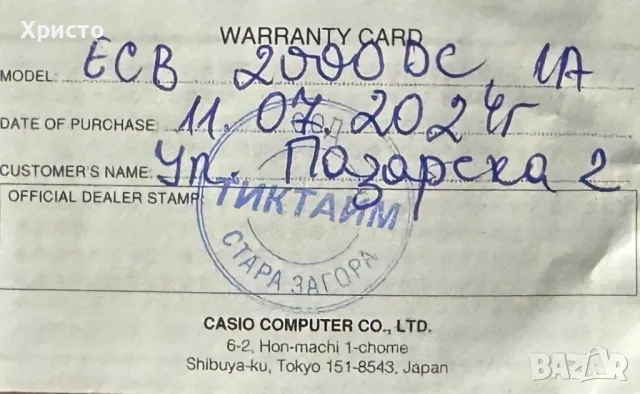 Христо
WARRANTY CARD
MODEL: ECB 2000DC, 1A
DATE OF PURCHASE: 11.07.2024г
CUSTOMER'S NAME: Ул. Пазарска 2
OFFICIAL DEALER STAMP:
ТИКТАЙМ
СТАРА ЗАГОРА
CASIO COMPUTER CO., LTD.
6-2, Hon-machi 1-chome
Shibuya-ku, Tokyo 151-8543, Japan
BAZAR